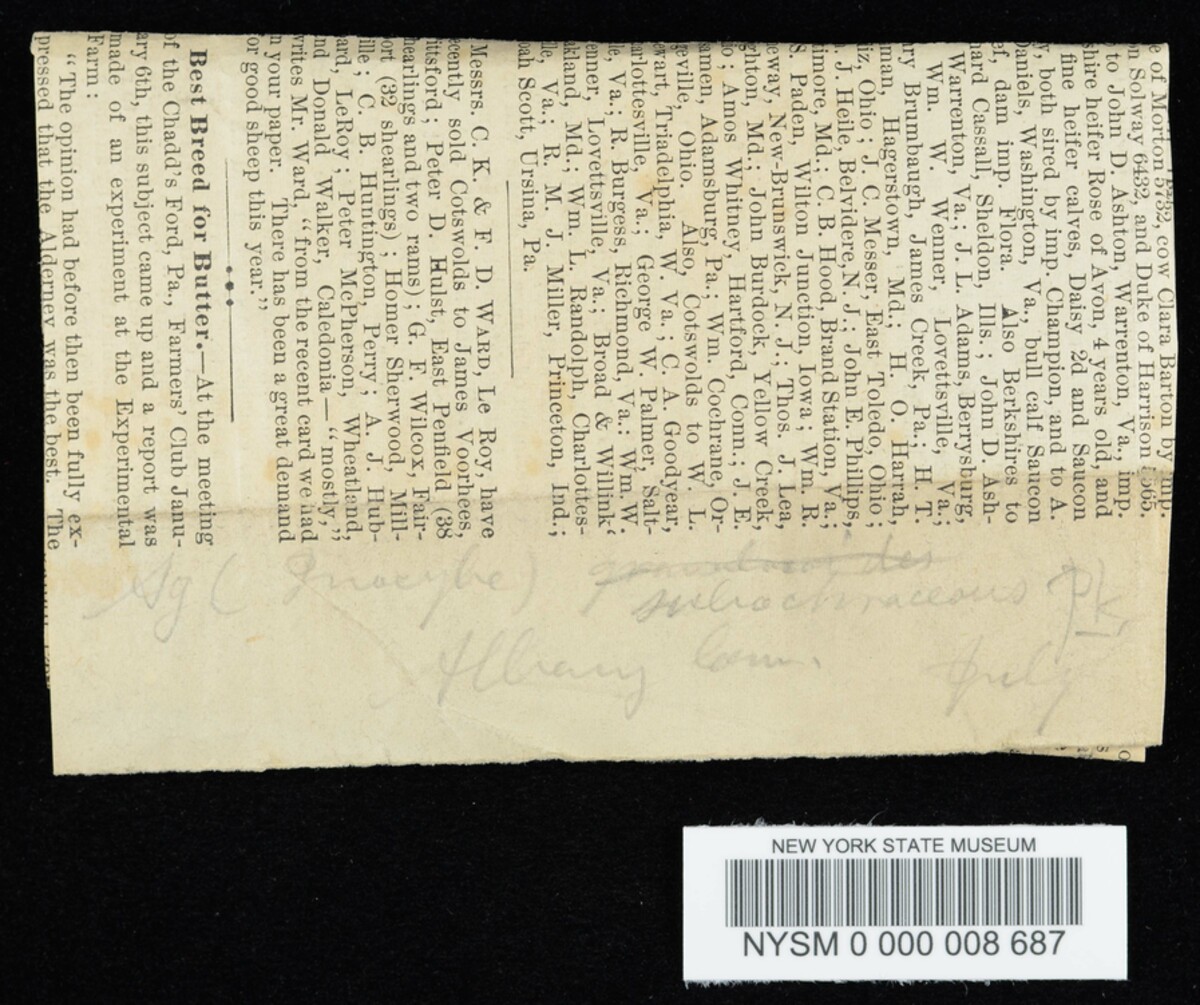 e of Morton 5732, cow Clara Barton by imp.
on Solway 6432, and Duke of Harrison 5565,
to John D. Ashton, Warrenton, Va., imp.
shire heifer Rose of Avon, 4 years old, and
fine heifer calves, Daisy 2d and Saucon
y, both sired by imp. Champion, and to A.
Daniels, Washington, Va., bull calf Saucon
ef, dam imp. Flora. Also Berkshires to
hard Cassall, Sheldon, Ills.; John D. Ash-
Warrenton, Va.; J. L. Adams, Berrysburg,
Wm. W. Wenner, Lovettsville, Va.;
ry Brumbaugh, James Creek, Pa.; H. T.
man, Hagerstown, Md., H. O. Harrah,
iz, Ohio; J. C. Messer, East Toledo, Ohio;
. J. Heile, Belvidere, N. J.; John E. Phillips,
imore, Md.; C. B. Hood, Brand Station, Va.;
S. Paden, Wilton Junction, Iowa; Wm. R.
eway, New-Brunswick, N. J.; Thos. J. Lea,
ghton, Md.; John Burdock, Yellow Creek,
io; Amos Whitney, Hartford, Conn.; J. E.
amen, Adamsburg, Pa.; Wm. Cochrane, Or-
geville, Ohio. Also, Cotswolds to W. L.
ewart, Triadelphia, W. Va.; C. A. Goodyear,
arlottesville, Va.; George W. Palmer, Salt-
le, Va.; R. Burgess, Richmond, Va.: Wm. W.
enner, Lovettsville, Va.; Broad & Willink
akland, Md.; Wm. L. Randolph, Charlottes-
lle, Va.; R. M. J. Miller, Princeton, Ind.;
oah Scott, Ursina, Pa.
Messrs. C. K. & F. D. WARD, Le Roy, have
ecently sold Cotswolds to James Voorhees,
ittsford; Peter D. Hulst, East Penfield (38
hearlings and two rams); G. F. Wilcox, Fair-
ort (32 shearlings); Homer Sherwood, Mill-
ille; C. B. Huntington, Perry; A. J. Hub-
ard, LeRoy; Peter McPherson, Wheatland,
nd Donald Walker, Caledonia—"mostly,"
writes Mr. Ward, "from the recent card we had
n your paper. There has been a great demand
or good sheep this year."
Best Breed for Butter.—At the meeting
of the Chadd's Ford, Pa., Farmers' Club Janu-
ary 6th, this subject came up and a report was
made of an experiment at the Experimental
Farm:
"The opinion had before then been fully ex-
pressed that the Alderney was the best. The
Ag (Inocybe)
subochraceous Pk.
Albany Cem. July
NEW YORK STATE MUSEUM
NYSM 0 000 008 687